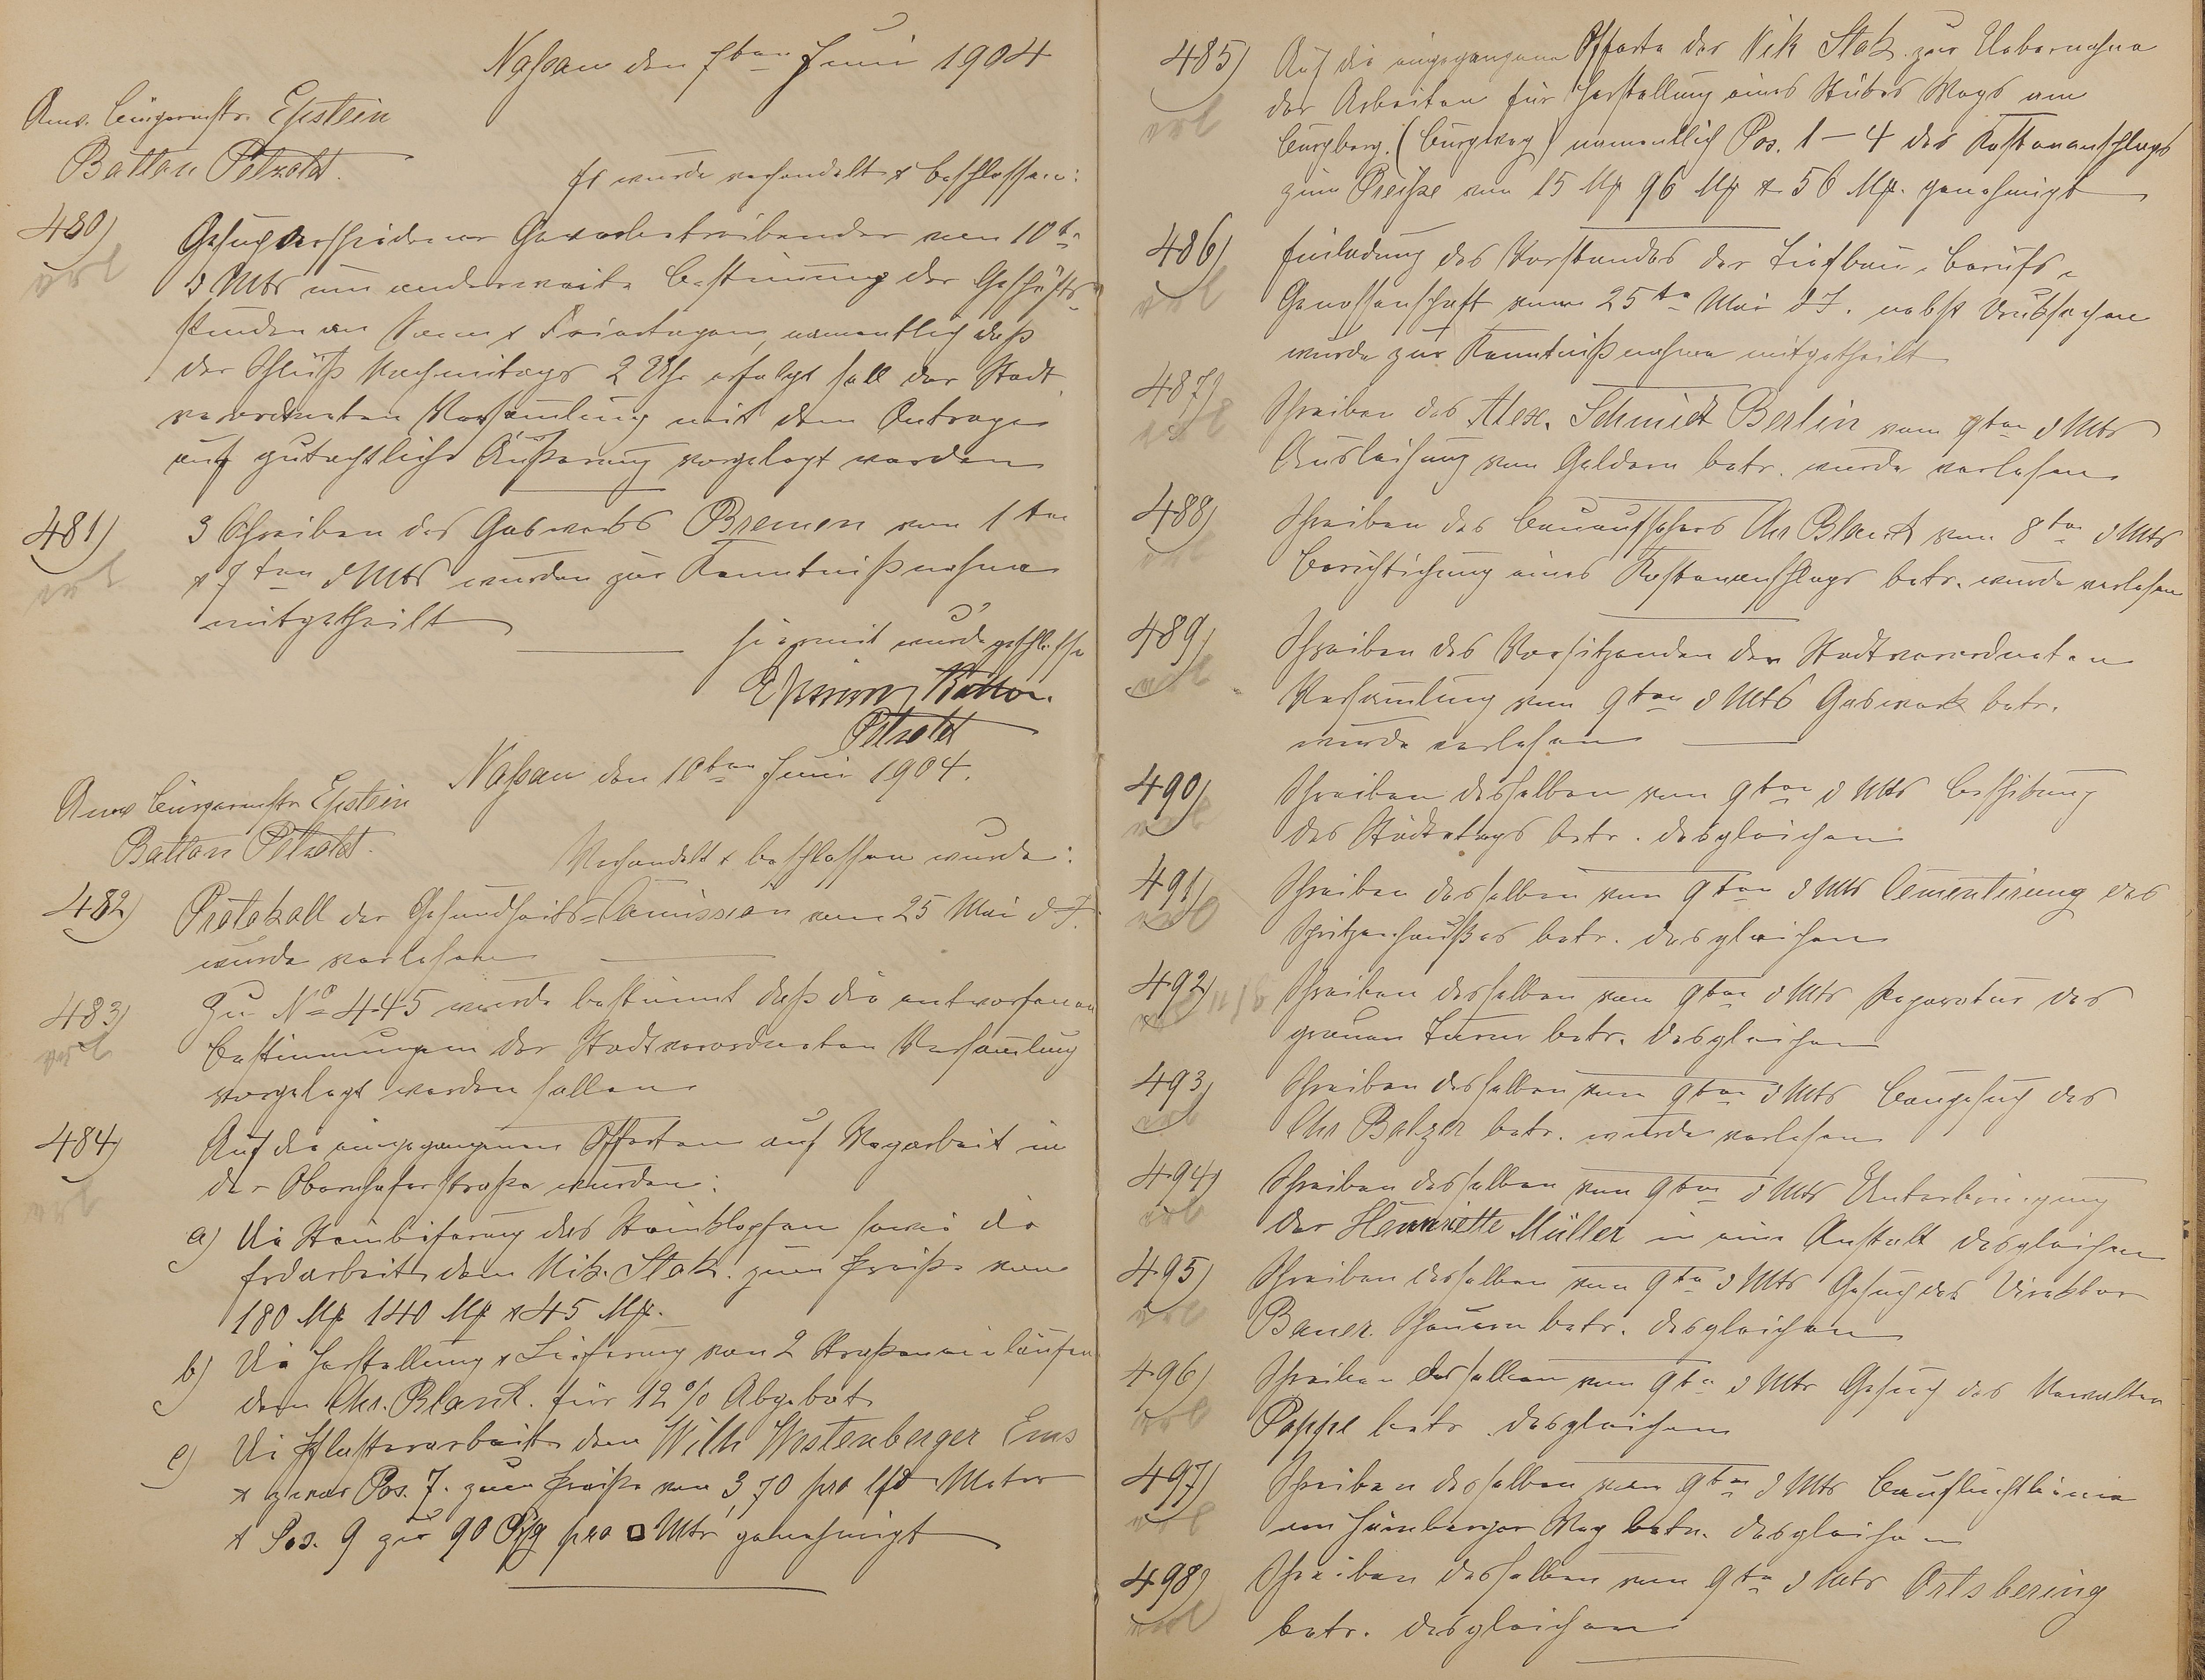 Naßau den 7ten Juni 1904
Anw. Bürgermstr. Epstein
Batton Petzoldt.
Es wurde verhandelt & beschlossen:
480)
Gesuch verschiedener Gewerbetreibender vom 10t
d Mts um anderweite Bestimung der Geschäfts
stunden an Sonn & Feiertagen, namentlich daß
der Schluß Nachmitags 2 Uhr erfolgt soll der Stadt
verordneten Versamlung mit dem Antrage
auf gutachtliche Äußerung vorgelegt werden
481)
vorl
3 Schreiben des Gaswerks Bremen vom 1ten
& 7ten d Mts wurden zur Kenntnißnahme
mitgetheilt
hiermit wurde geschlossen
Epstein Batton.
Petzoldt
Naßau den 10ten Juni 1904.
Anw Bürgermstr Epstein
Batton Petzoldt.
Verhandelt & beschlossen wurde:
482)
Protokoll der Gesundheits-Comission vom 25 Mai d J.
wurde verlesen
483)
vorl
Zu No 445 wurde bestimmt daß die entworfenen
Bestimmungen der Stadtverordneten Versamlung
vorgelegt werden sollen
484)
vorl
Auf die eingegangenen Offerten auf Wegarbeit in
der Obernhoferstraße wurden:
a) Die Steinlieferung das Steinklopfen sowie die
Erdarbeit dem Nik. Stok. zum Preiße von
180 Mk 140 Mk & 45 Mk.
b) Die Herstellung & Lieferung von 2 Straßeneinläufen
dem Chr. Blank. für 12 % Abgebot
c) Die Pflasterarbeit dem Wilh Westenberger Ems
& zwar Pos. 7. zum Preiße von 3,70 pro lfd Meter
& Pos. 9 zu 90 Pfg pro □ Mtr genehmigt
485)
vorl
Auf die eingegangene Offerte des Nik Stok. zur Uebernahme
der Arbeiten für Herstellung eines Wegs am
Burgberg. (Burgweg) namentlich Pos. 1 – 4 des Kostenanschlags
zum Preiße von 15 Mk 96 Mk & 56 Mk. genehmigt
486)
vorl
Einladung des Vorstandes der Tiefbau-Berufs-
Genossenschaft vom 25te Mai d J. nebst Druksachen
wurde zur Kenntnißnahme mitgetheilt
487)
vorl
Schreiben des Alex. Schmidt Berlin vom 9ten d Mts
Ausleihung von Geldern betr. wurde verlesen
488)
vorl
Schreiben des Bauaufsehers Chr Blank vom 8ten d Mts
Berichtichung eines Kostenanschlags betr. wurde verlesen
489)
vorl
Schreiben des Vorsitzenden der Stadtverordneten
Versamlung vom 9ten d Mts Gaswerk betr.
wurde verlesen
490)
vorl
Schreiben desselben vom 9ten d Mts Beschikung
des Städtetags betr. desgleichen
491)
vorl
Schreiben desselben vom 9ten d Mts Cementirung des
Spritzenhaußes betr. desgleichen
492)
Schreiben desselben vom 9ten d Mts Reparatur des
grauen Turm betr. desgleichen
493)
vorl
Schreiben desselben vom 9ten d Mts Baugesuch des
Chr Balzer betr. wurde verlesen
494)
vorl
Schreiben desselben vom 9ten d Mts Unterbringung
der Hennriette Müller in eine Anstalt desgleichen
495)
vorl
Schreiben desselben vom 9te d Mts Gesuch des Direktor
Bauer. Scheuern betr. desgleichen
496)
vorl
Schreiben desselben vom 9te d Mts Gesuch des Verwalters
Poppe betr. desgleichen
497)
vorl
Schreiben desselben vom 9ten d Mts Baufluchtlinie
am Hömberger Weg betr. desgleichen
498)
vorl
Schreiben desselben vom 9te d Mts Ortsbering
betr. desgleichen